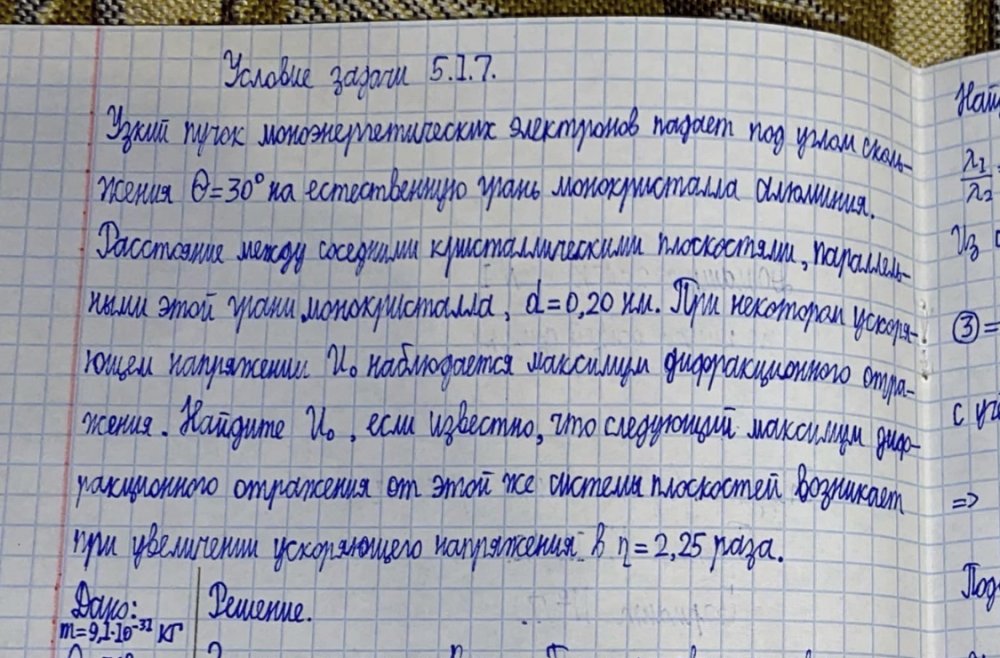 Условие задачи 5.1.7.
Узкий пучок моноэнергетических электронов падает под углом сколь-
жения θ=30° на естественную грань монокристалла алюминия.
Расстояние между соседними кристаллическими плоскостями, параллель-
ными этой грани монокристалла, d=0,20 нм. При некотором ускоря-
ющем напряжении U₀ наблюдается максимум дифракционного отра-
жения. Найдите U₀, если известно, что следующий максимум диф-
ракционного отражения от этой же системы плоскостей возникает
при увеличении ускоряющего напряжения в η=2,25 раза.
Дано: Решение.
m=9,1·10⁻³¹ кг
λ₁
λ₂
Из
③=
с
=>